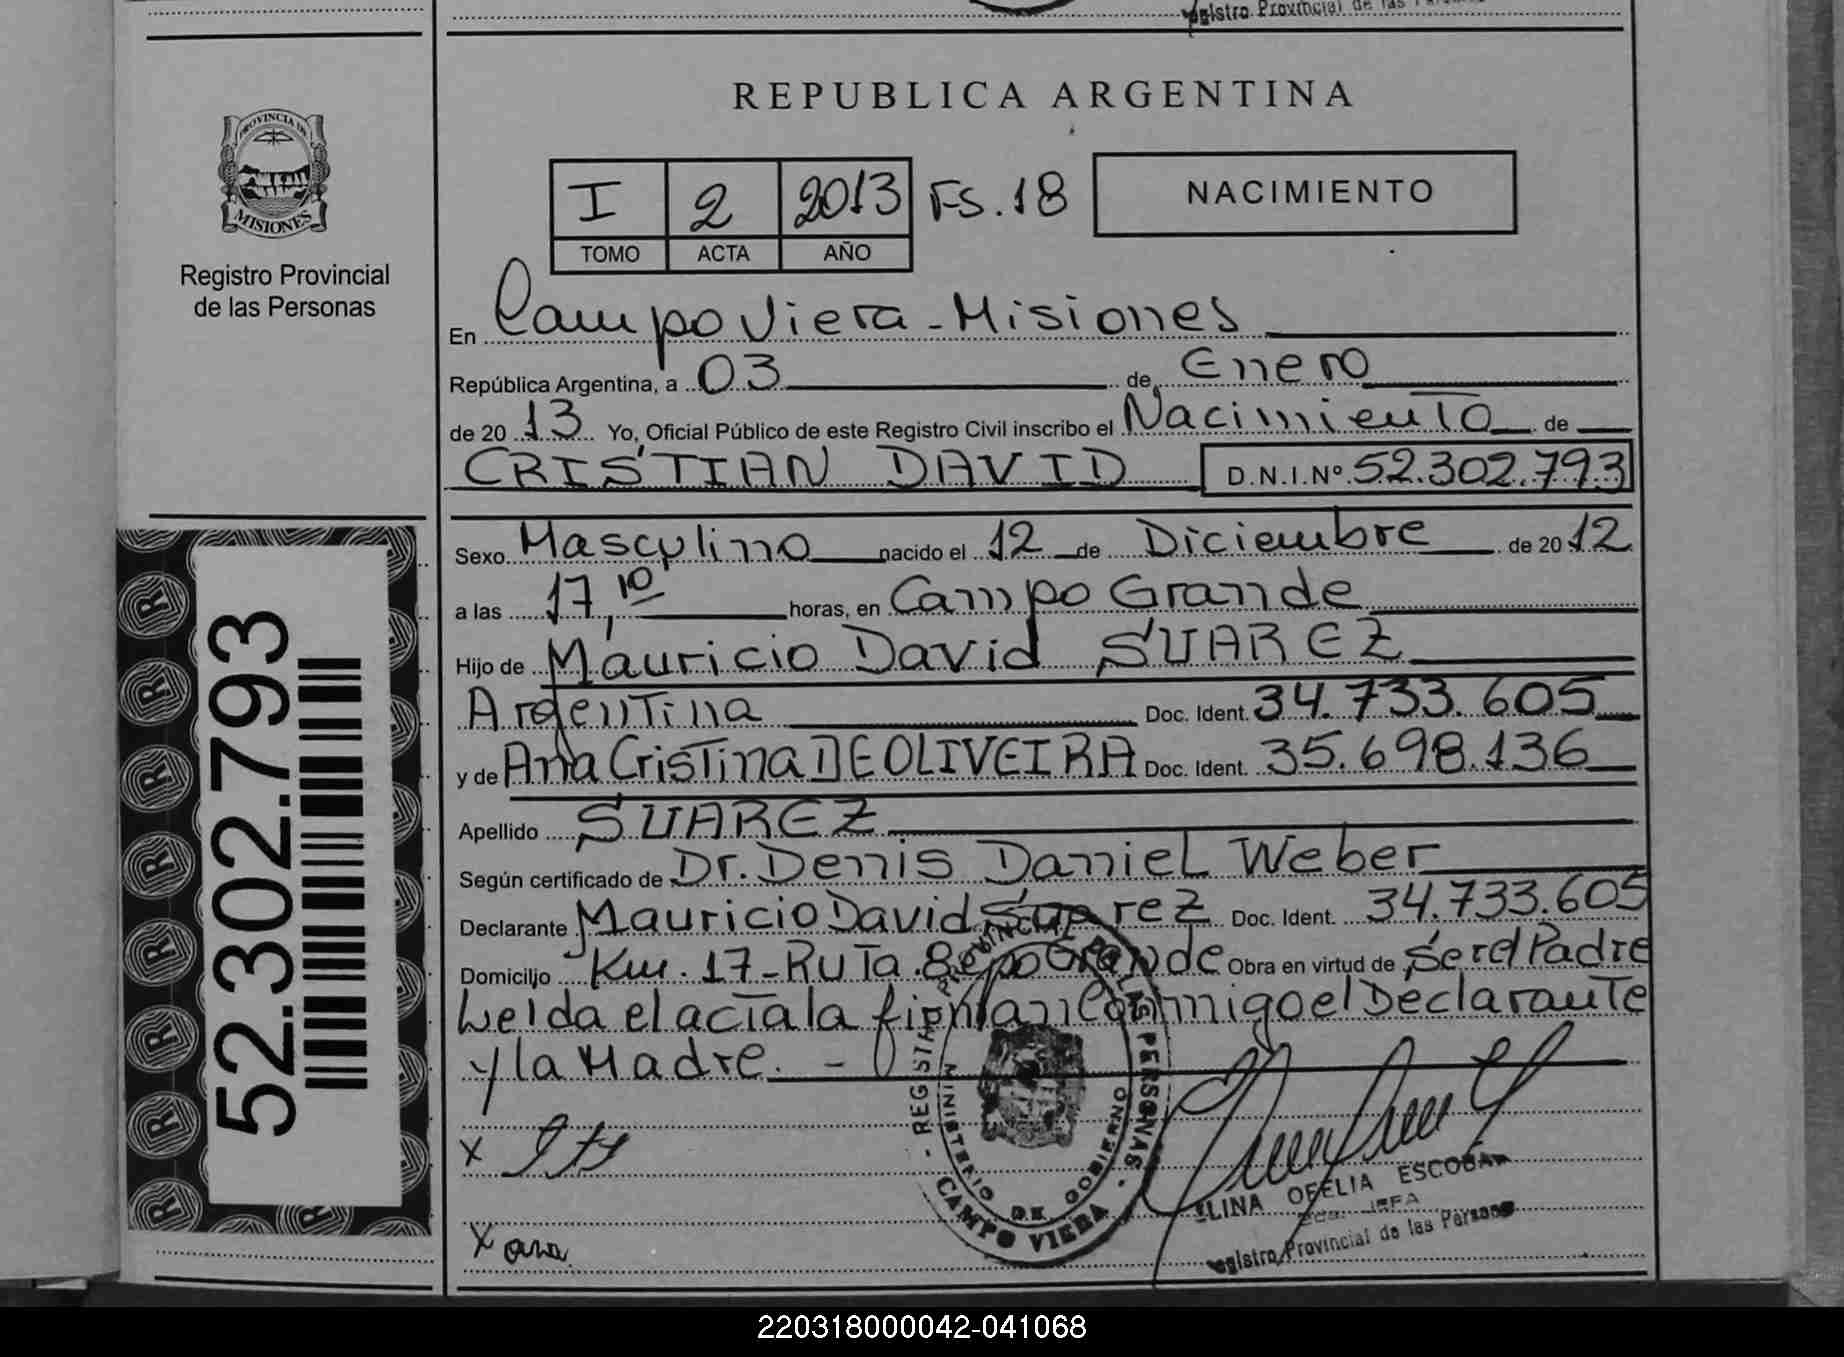 Registro Provincial de las
REPUBLICA ARGENTINA
PROVINCIA DE
MISIONES
Registro Provincial
de las Personas
I 2 2013 FS. 18
TOMO ACTA AÑO
NACIMIENTO
En Campo Viera - Misiones
República Argentina, a 03 de Enero
de 20 13 Yo, Oficial Público de este Registro Civil inscribo el Nacimiento de
CRISTIAN DAVID D.N.I.Nº 52.302.793
Sexo Masculino nacido el 12 de Diciembre de 20 12
a las 17,10 horas, en Campo Grande
Hijo de Mauricio David SUAREZ
Argentina Doc. Ident. 34.733.605
y de Ana Cristina DE OLIVEIRA Doc. Ident. 35.698.136
Apellido SUAREZ
Según certificado de Dr. Denis Daniel Weber
Declarante Mauricio David Suarez Doc. Ident. 34.733.605
Domicilio Km. 17 - Ruta 8 Cpo Grande Obra en virtud de Ser el Padre
Leida el acta la firman Conmigo el Declarante
y la Madre. -
X
X ana
52.302.793
REGISTRO PROVINCIAL DE LAS PERSONAS
MINISTERIO DE GOBIERNO
CAMPO VIERA
ELINA OFELIA ESCOBAR
JEFA
Registro Provincial de las Personas
220318000042-041068